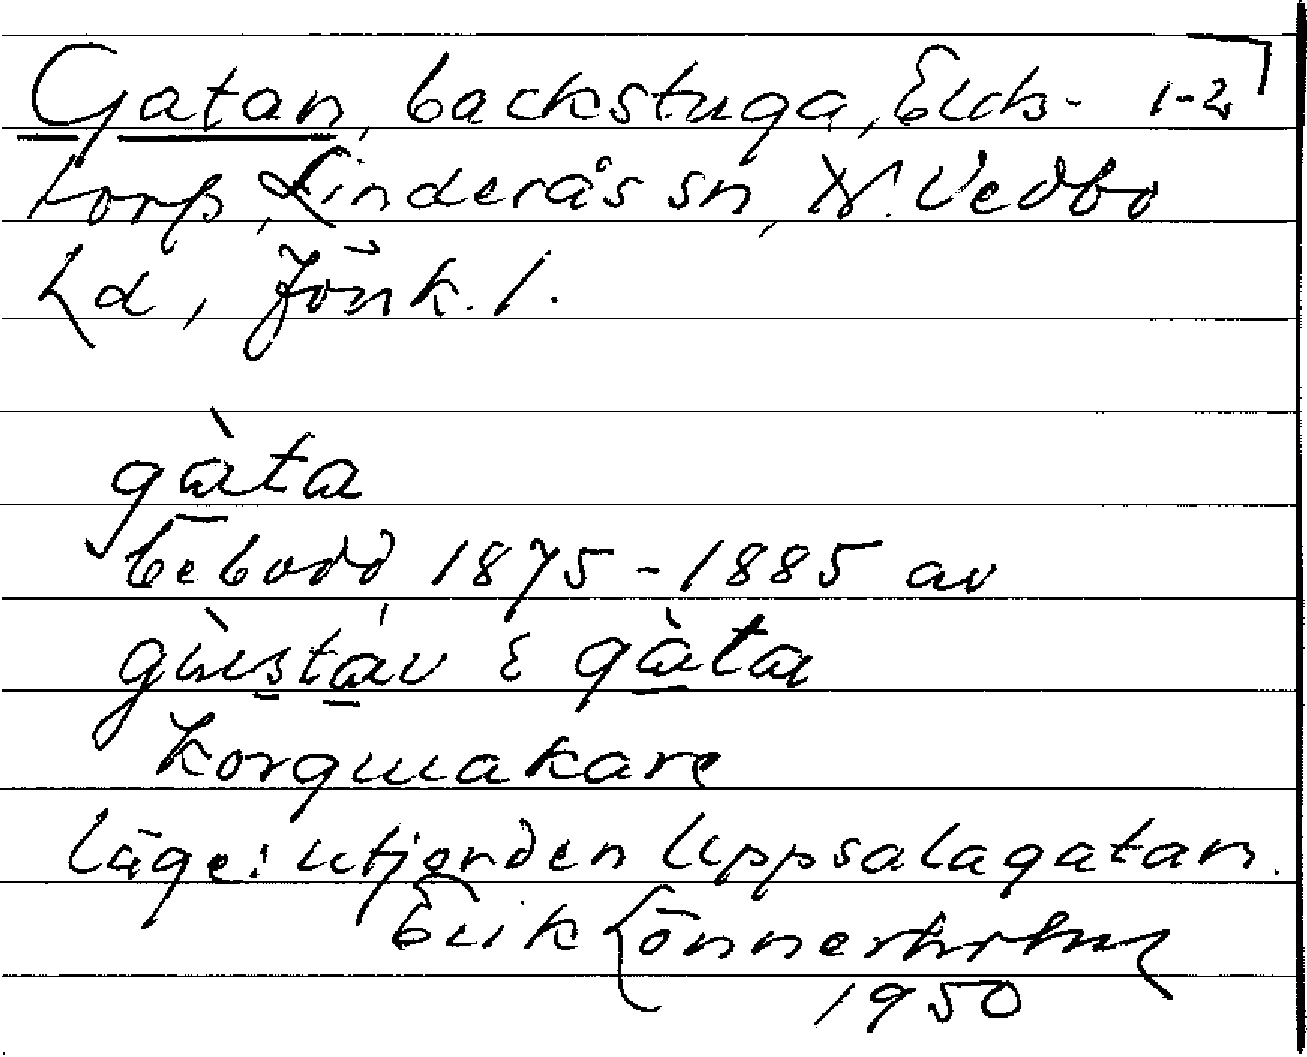 Gatan, backstuga, Ekks- 1-2
torp, Linderås sn, N. Vedbo
hd, Jönk. l.
gàta
bebodd 1875-1885 av
gùstáv i gàta
korgmakare
läge: utjorden Uppsalagatan.
Erik Lönnerholm
1950